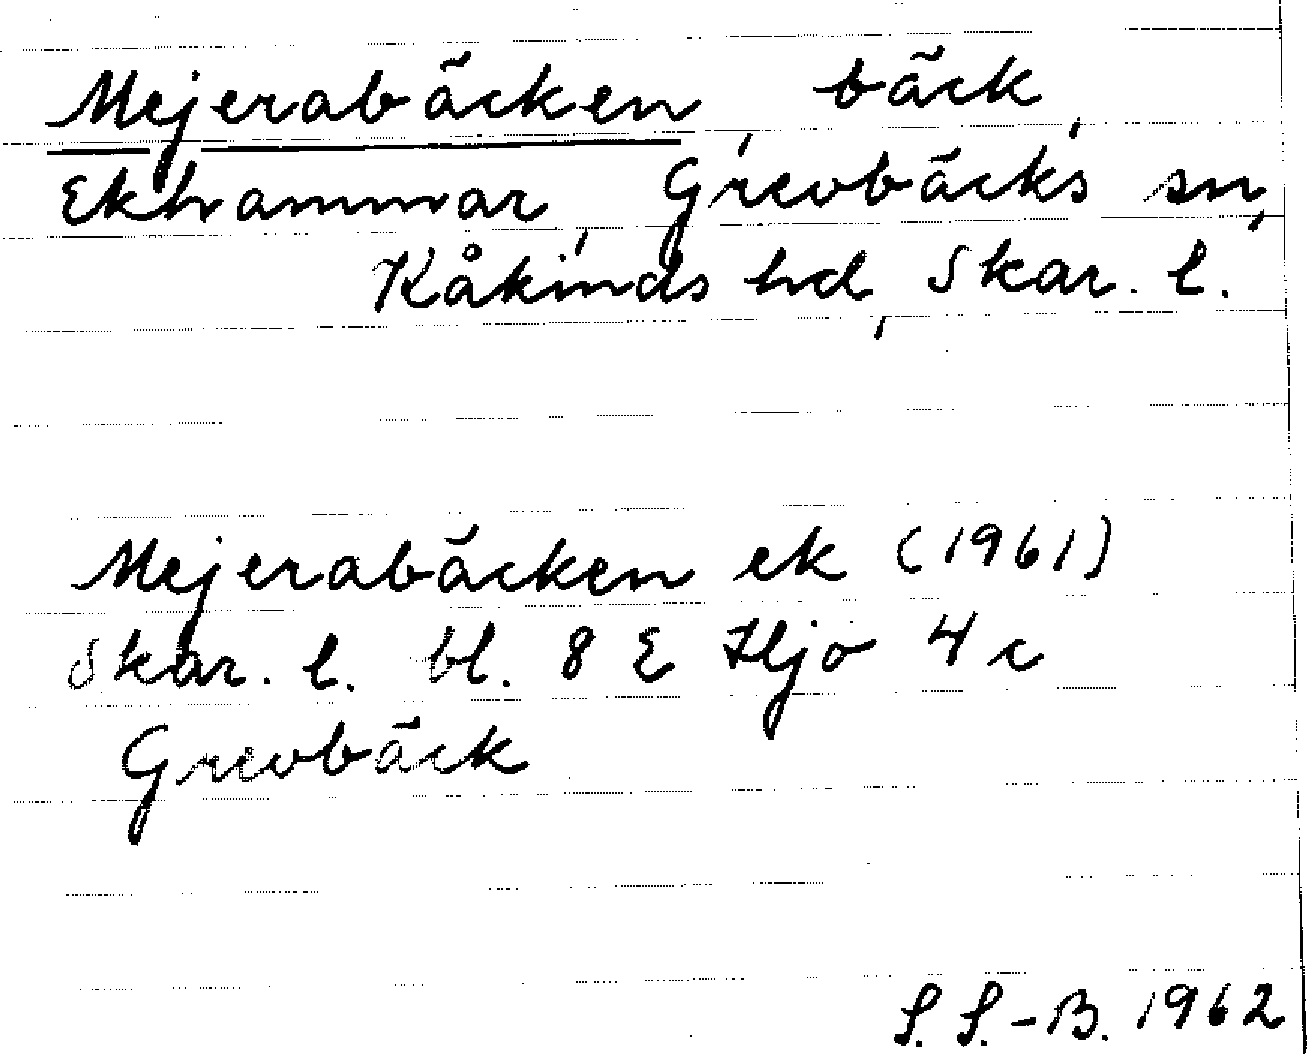 Mejerabäcken, bäck,
Ekhammar, Grevbäcks sn,
Kåkinds hd, Skar. l.
Mejerabäcken ek (1961)
Skar. l. bl. 8 E Hjo 4 c
Grevbäck
S. S.-B. 1962